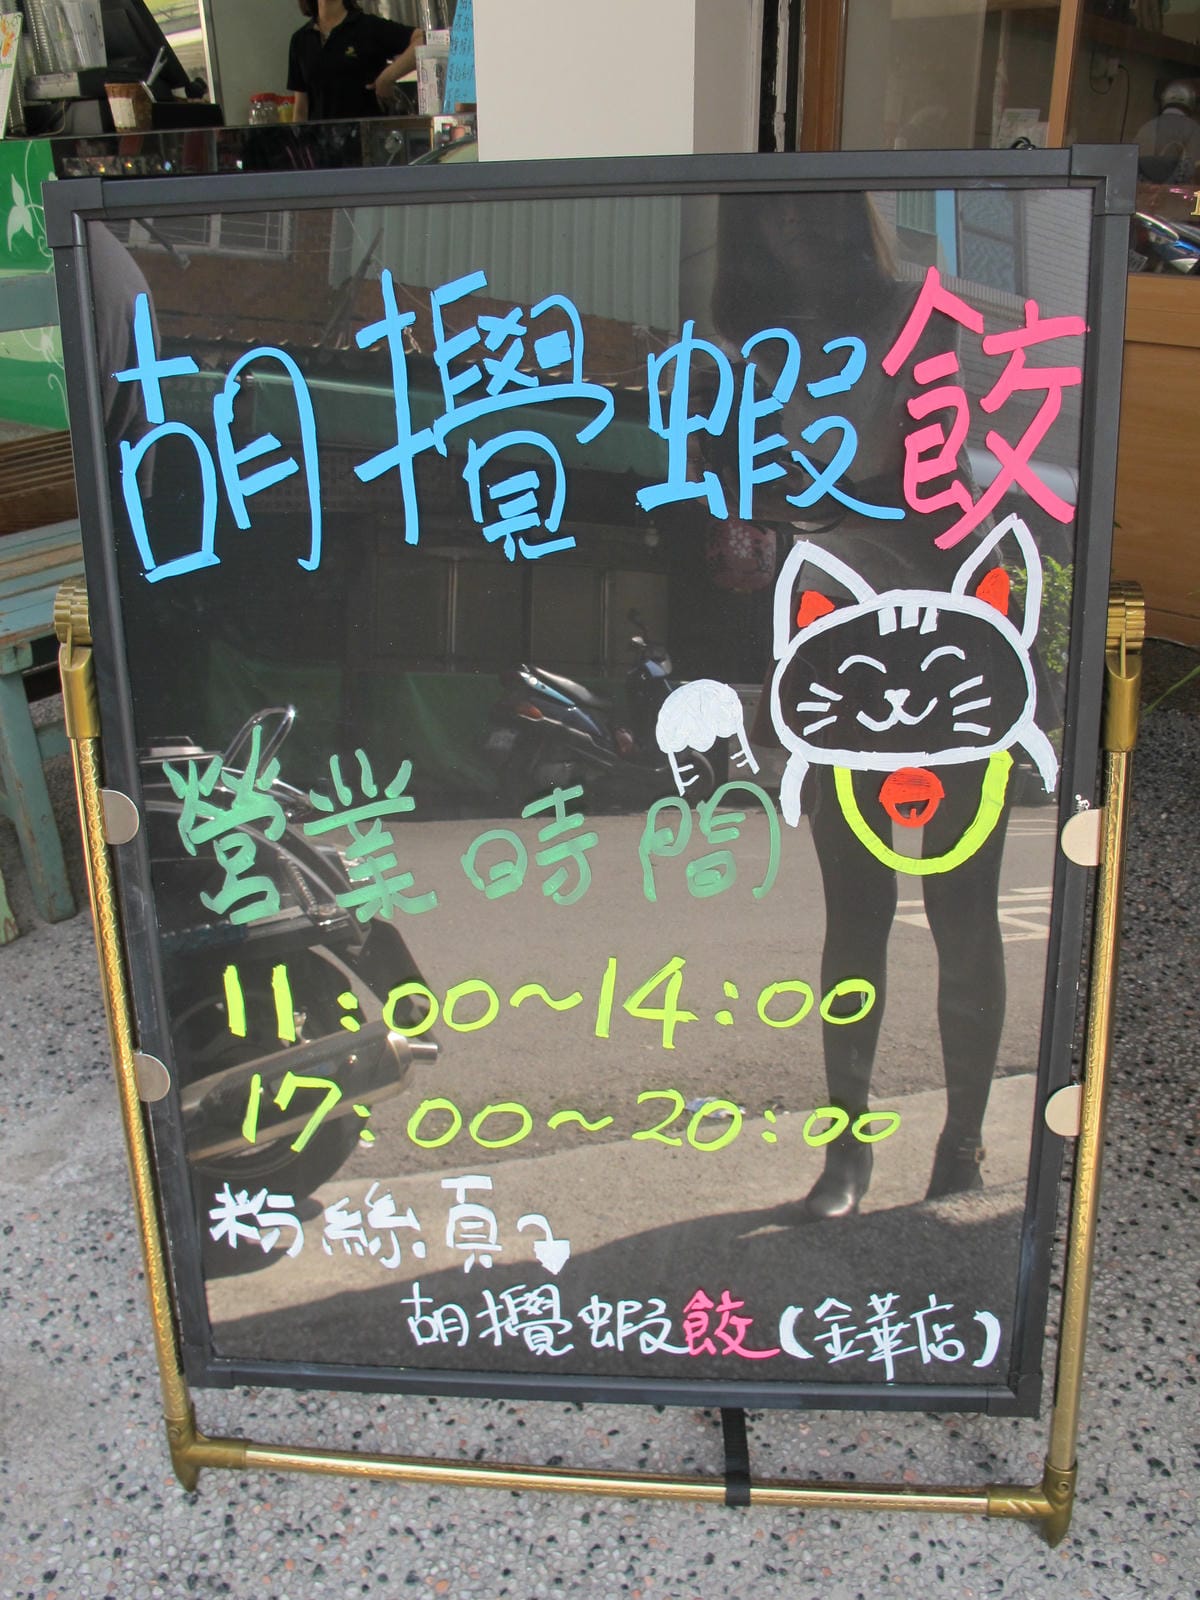 胡攪蝦餃
營業時間
11:00~14:00
17:00~20:00
粉絲頁
胡攪蝦餃(金華店)